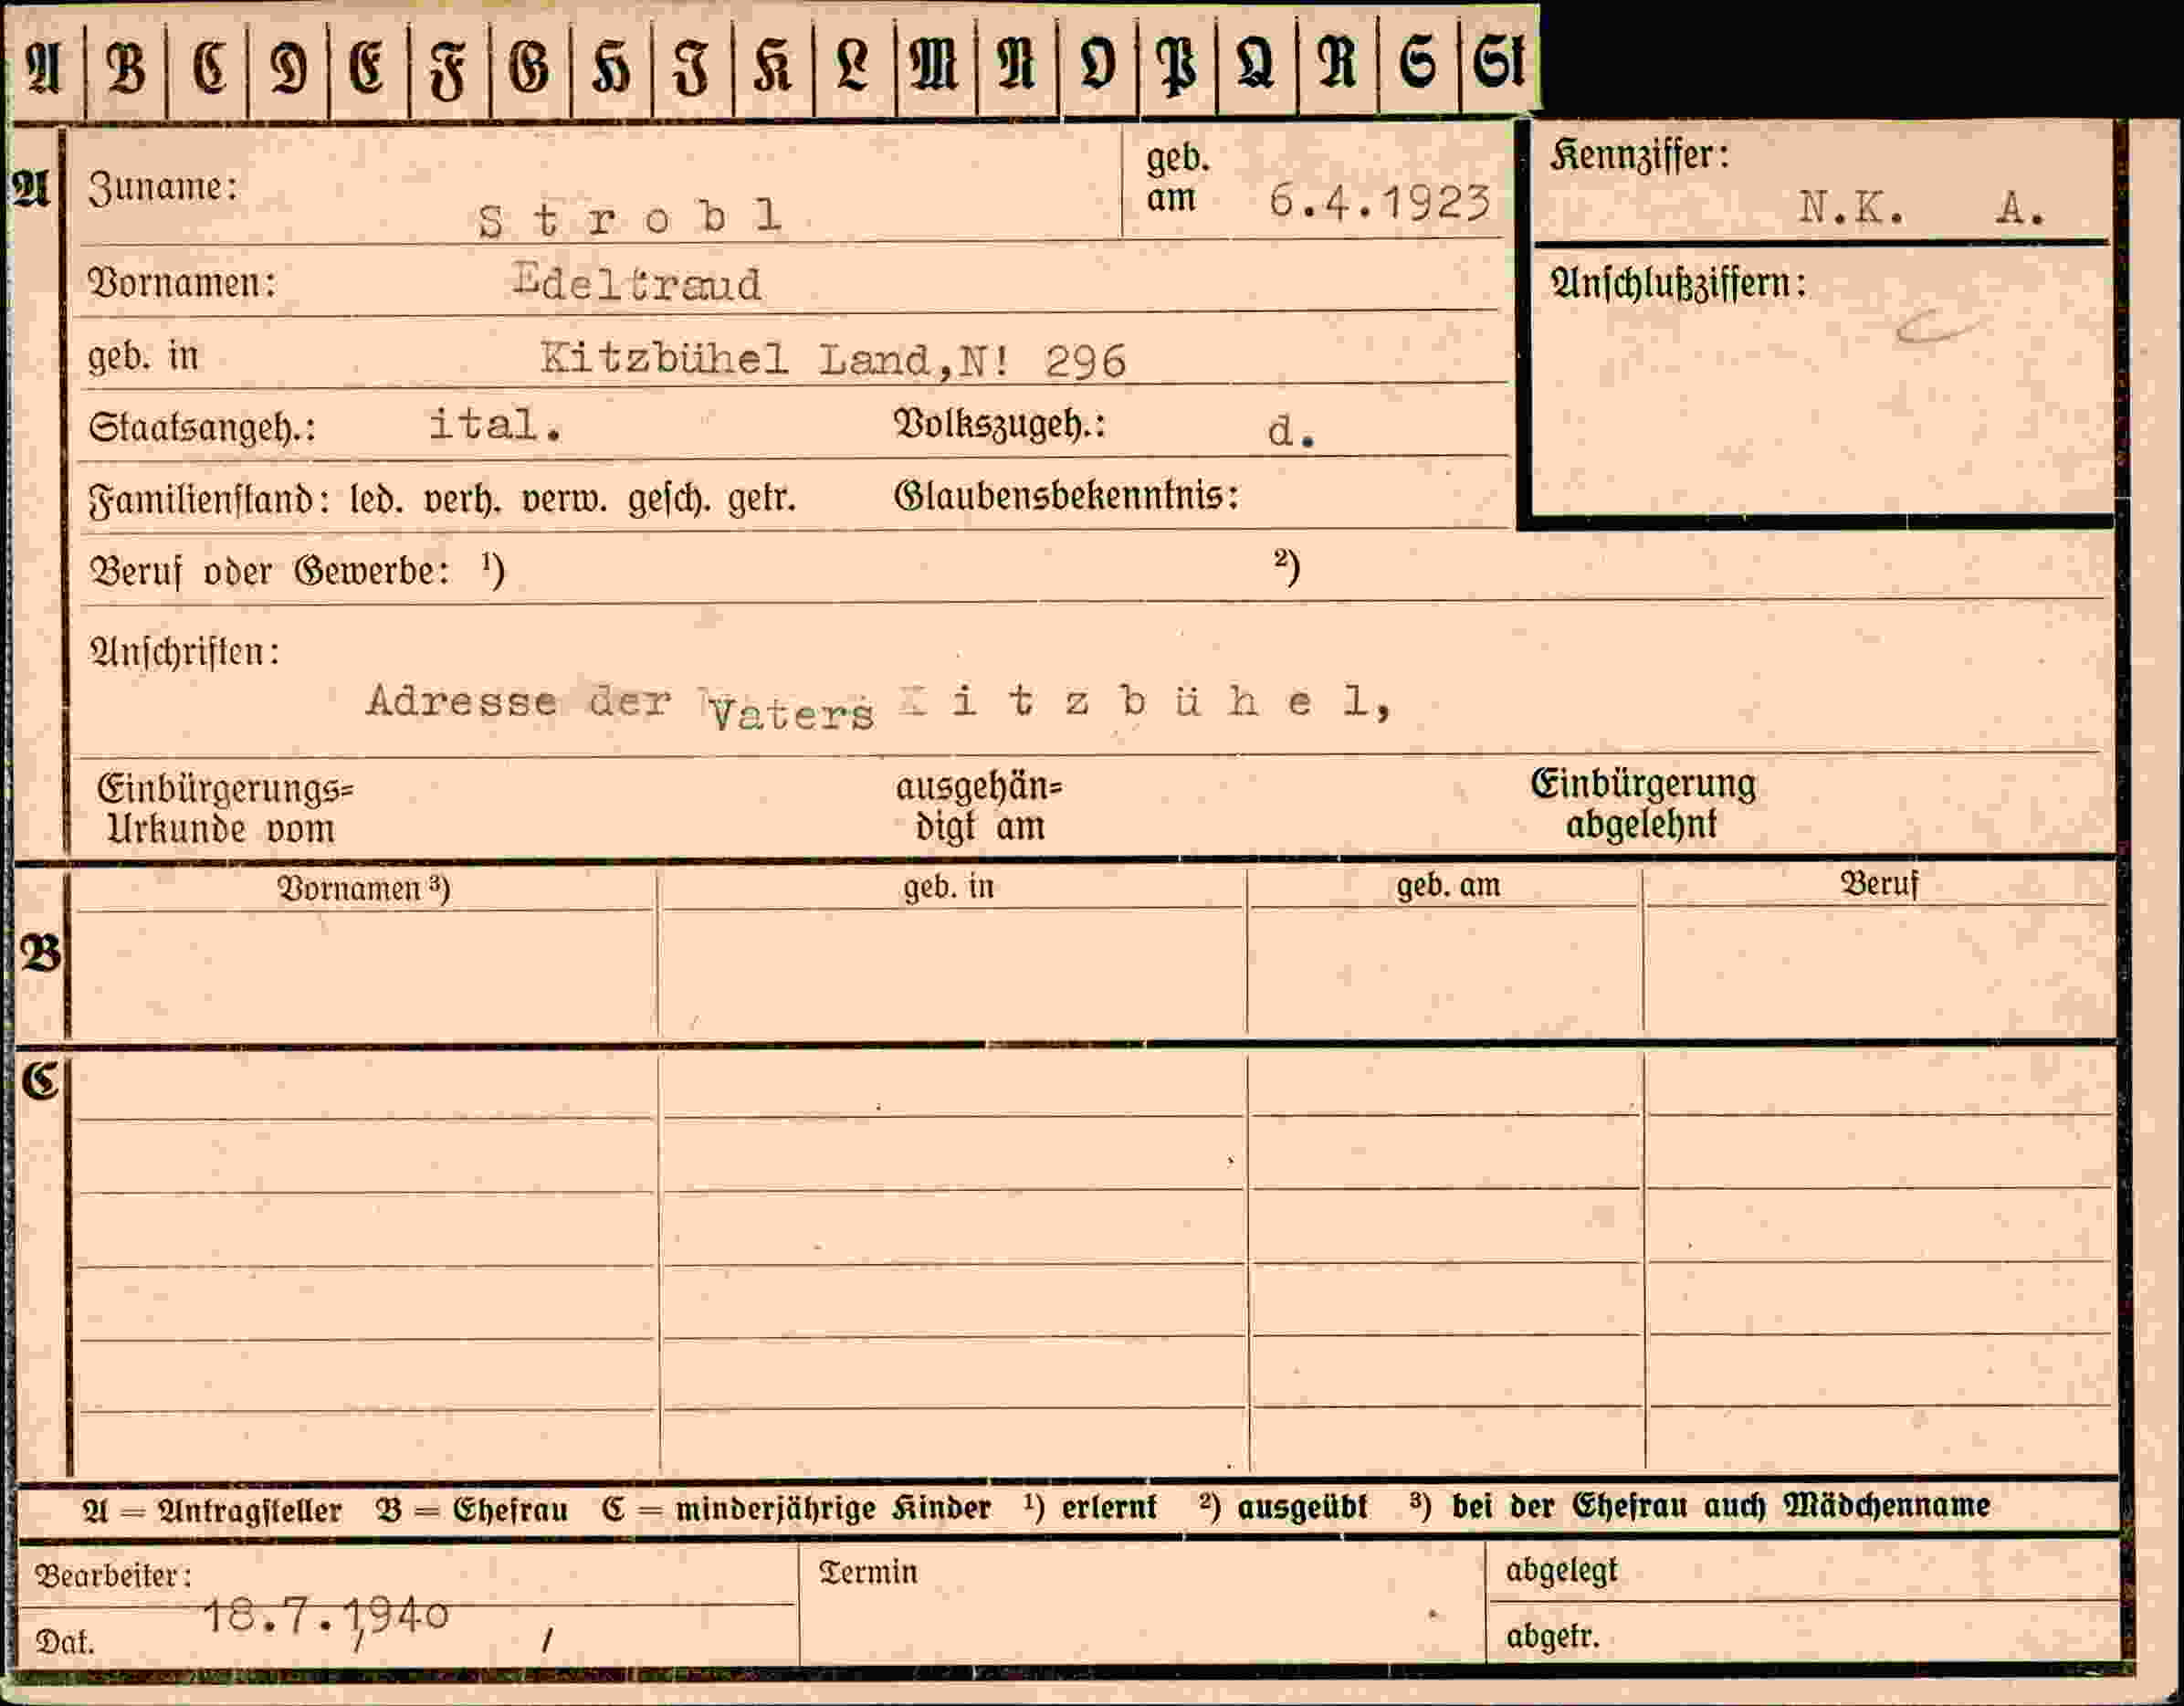 A B C D E F G H I K L M N O P Q R S St
A Zuname: Strobl geb. am 6.4.1923 Kennziffer: N.K. A.
Vornamen: Edeltraud Anschlußziffern:
geb. in Kitzbühel Land,N! 296
Staatsangeh.: ital. Volkszugeh.: d.
Familienstand: led. verh. verw. gesch. getr. Glaubensbekenntnis:
Beruf oder Gewerbe: ¹) ²)
Anschriften:
Adresse der Vaters Kitzbühel,
Einbürgerungs= ausgehän= Einbürgerung
Urkunde vom digt am abgelehnt
Vornamen ³) geb. in geb. am Beruf
B
C
A = Antragsteller B = Ehefrau C = minderjährige Kinder ¹) erlernt ²) ausgeübt ³) bei der Ehefrau auch Mädchenname
Bearbeiter: Termin abgelegt
18.7.1940
Dat. abgetr.